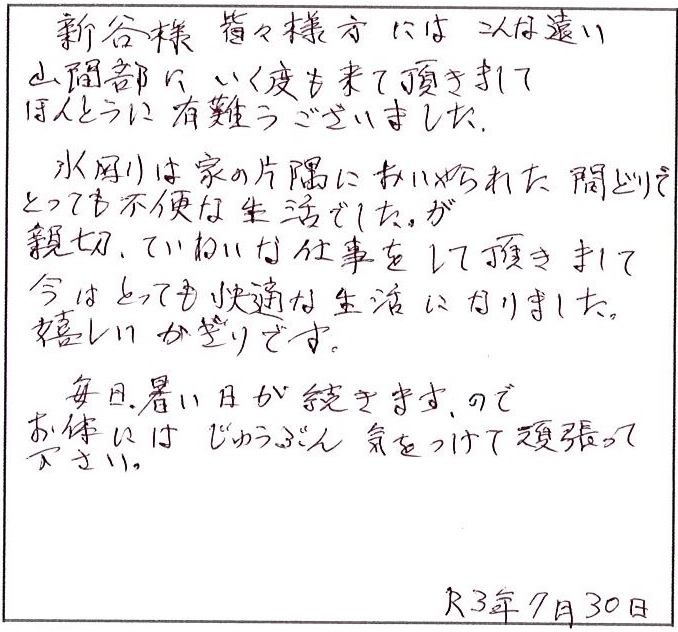 新谷様 皆々様方には こんな遠い
山間部に いく度も来て頂きまして
ほんとうに 有難うございました。
水回りは家の片隅においやられた 間どりで
とっても不便な生活でした。が
親切、ていねいな仕事をして頂きまして
今はとっても快適な生活になりました。
嬉しいかぎりです。
毎日、暑い日が続きます、ので
お体には じゅうぶん 気をつけて頑張って
下さい。
R3年7月30日